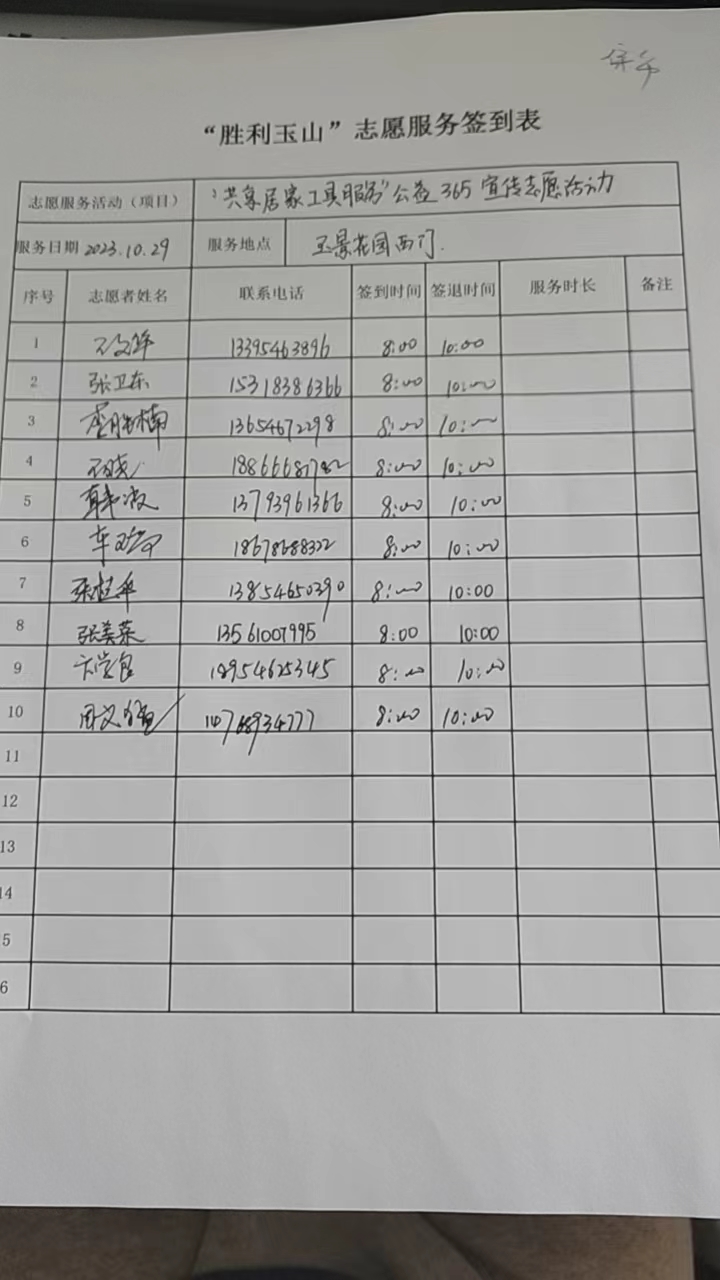 “胜利玉山”志愿服务签到表
志愿服务活动（项目） “共享居家工具服务”公益365宣传志愿活动
服务日期 2023.10.29 服务地点 玉景花园西门.
序号 志愿者姓名 联系电话 签到时间 签退时间 服务时长 备注
1 13395463896 8:00 10:00
2 张卫东 15318386366 8:00 10:00
3 13654672298 8:00 10:00
4 8:00 10:00
5 韩波 13793961366 8:00 10:00
6 18678688322 8:00 10:00
7 张桂华 13854650390 8:00 10:00
8 张美菜 13561007995 8:00 10:00
9 18954625345 8:00 10:00
10 8:00 10:00
11
12
13
14
5
6